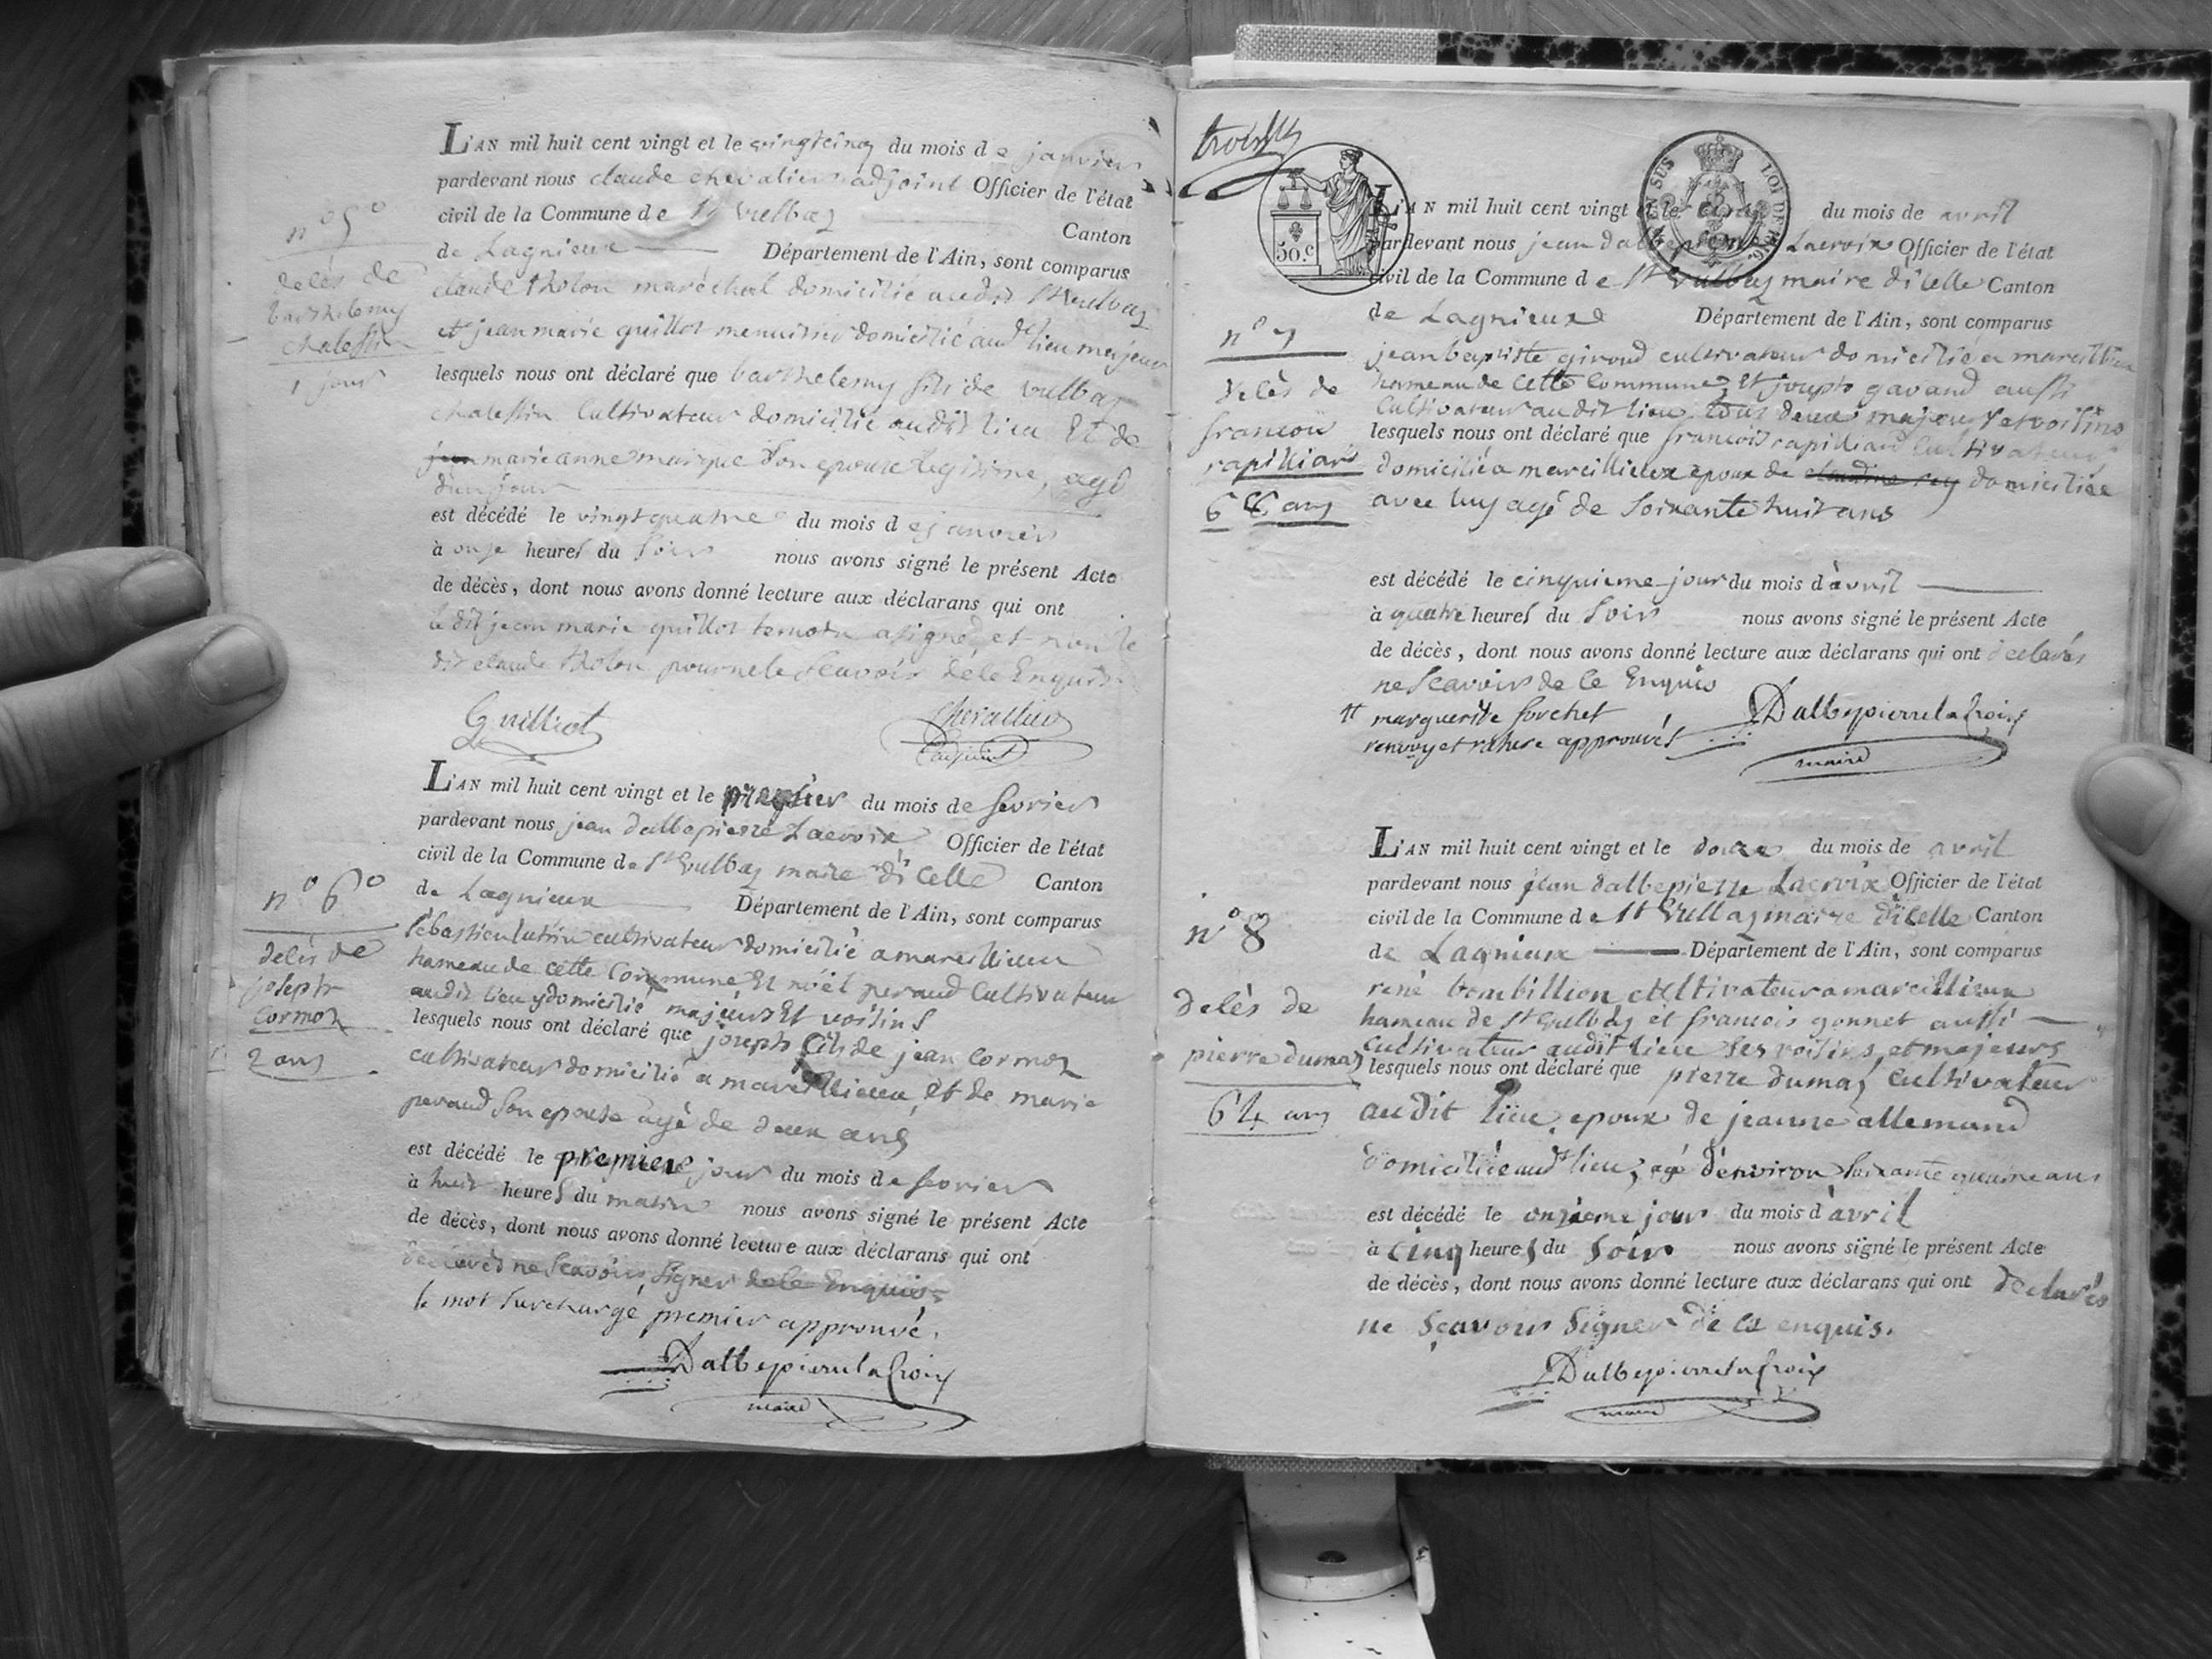 n° 5°
décès de
barthelemy
chalessin
1 jour
L'AN mil huit cent vingt et le vingtcinq du mois de janvier
pardevant nous claude chevalier adjoint Officier de l'état
civil de la Commune de St Vulbas
Canton
de Lagnieux Département de l'Ain, sont comparus
claude tholon maréchal domicilié audit St Vulbas
et jean marie guillot menuisier domicilié audt lieu majeurs
lesquels nous ont déclaré que barthelemy fils de vulbas
chalessin Cultivateur domicilié audit lieu Et de
marieanne son epouse legitime, agé
d'un jour
est décédé le vingtquatre du mois de janvier
à onze heures du soir nous avons signé le présent Acte
de décès, dont nous avons donné lecture aux déclarans qui ont
le dit jean marie guillot temoin a signé et non le
dit claude tholon pour ne le scavoir de ce Enquis
Guilliot Chevallier
adjoint
n° 6°
décès de
joseph
Cormoz
2 ans
L'AN mil huit cent vingt et le premier du mois de fevrier
pardevant nous jean dalbepierre Lacroix Officier de l'état
civil de la Commune de St Vulbas maire d'icelle Canton
de Lagnieux Département de l'Ain, sont comparus
sebastien cultivateur domicilié a marcillieux
hameau de cette Commune Et noël peraud Cultivateur
audit lieu y domicilié majeurs Et voisins
lesquels nous ont déclaré que joseph fils de jean Cormoz
cultivateur domicilié a marcillieux, et de marie
peraud son epouse agé de deux ans
est décédé le premier jour du mois de fevrier
à huit heures du matin nous avons signé le présent Acte
de décès, dont nous avons donné lecture aux déclarans qui ont
declarés ne scavoir signer de ce Enquis
le mot surchargé premier approuvé.
Dalbepierrelacroix
maire
trois
50.c
n° 7
décès de
francois
rapilliard
66 ans
L'AN mil huit cent vingt et le cinq du mois de avril
pardevant nous jean dalbepierre Lacroix Officier de l'état
civil de la Commune de St Vulbas maire d'icelle Canton
de Lagnieux Département de l'Ain, sont comparus
jeanbaptiste giroud cultivateur domicilié a marcillieux
hameau de cette Commune, Et joseph gavand aussi
Cultivateur audit lieu tous deux majeurs et voisins
lesquels nous ont déclaré que francois rapilliard Cultivateur
domicilié a marcillieux epoux de claudine rey domiciliée
avec luy agé de soixante huit ans
est décédé le cinquieme jour du mois d'avril
à quatre heures du soir nous avons signé le présent Acte
de décès, dont nous avons donné lecture aux déclarans qui ont declarés
ne scavoir de ce Enquis
marguerite sorchet Dalbepierrelacroix
renvoy et rature approuvés
maire
n° 8
décès de
pierre dumas
64 ans
L'AN mil huit cent vingt et le douze du mois de avril
pardevant nous jean dalbepierre Lacroix Officier de l'état
civil de la Commune de St Vulbas maire d'icelle Canton
de Lagnieux Département de l'Ain, sont comparus
rené bombillion cultivateur a marcillieux
hameau de St Vulbas et francois gonnet aussi
cultivateur audit lieu ses voisins et majeurs
lesquels nous ont déclaré que pierre dumas cultivateur
au dit lieu, epoux de jeanne allemand
domiciliée audt lieu, agé d'environ soixante quatre ans
est décédé le onzieme jour du mois d'avril
à cinq heures du soir nous avons signé le présent Acte
de décès, dont nous avons donné lecture aux déclarans qui ont declarés
ne sçavoir signer de ce enquis.
Dalbepierrelacroix
maire